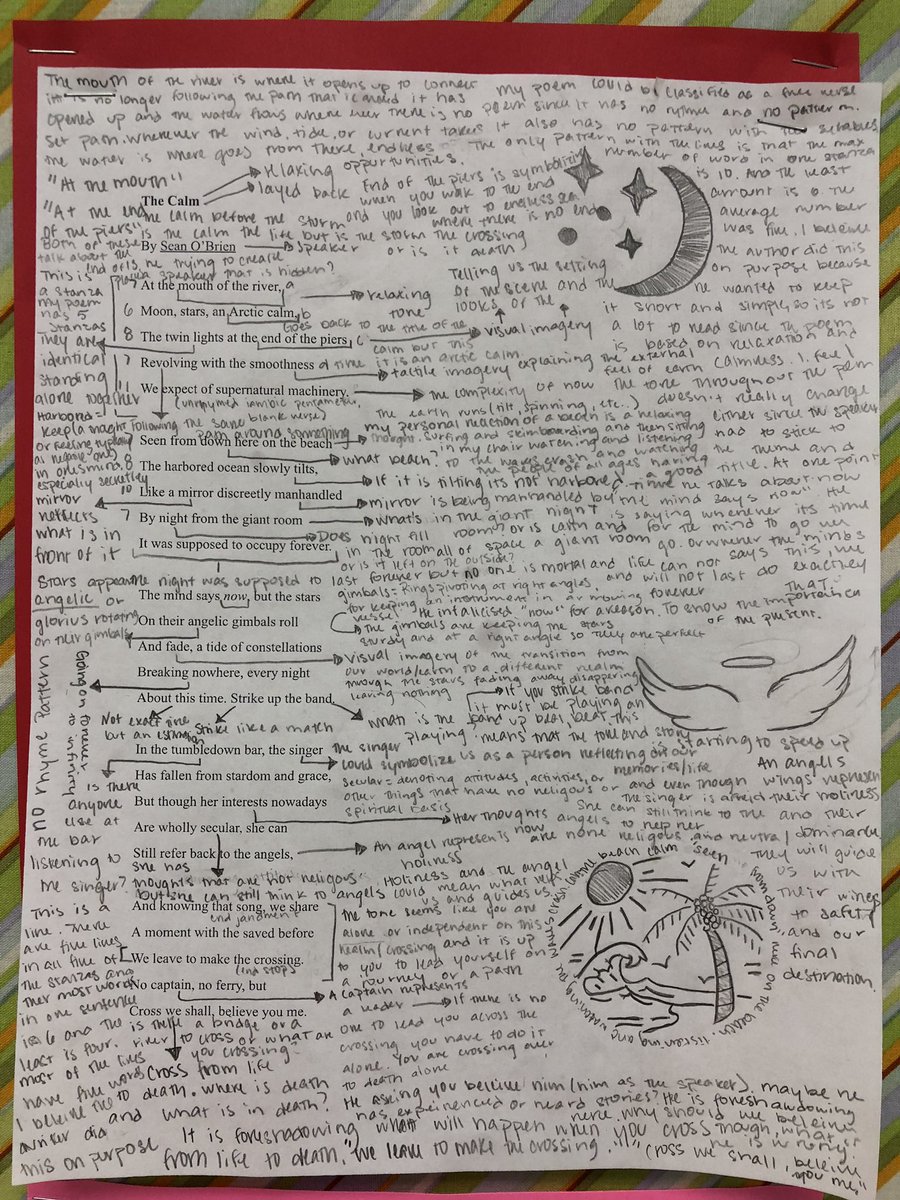 The mouth of the river is where it opens up to connect
it is no longer following the path that it had it has
opened up and the water flows where ever there is no
set path. wherever the wind, tide, or current takes it
the water is where goes from there, endless
opportunities.
my poem could be classified as a free verse
poem since it has no rythme and no pattern.
It also has no pattern with the sellables
The only pattern with the lines is that the max
number of word in one stanza
is 10. And the least
amount is 6 the
average number
was five. I beleive
the author did this
on purpose because
he wanted to keep
it short and simple, so its not
a lot to read since the poem
is based on relaxation and
calmness. I feel
the tone throughout the poem
doesn't really change
either since the speaker
had to stick to
the theme and
title. At one point
he talks about now
"At the mouth"
relaxing
layed back
"At the end
of the piers"
Both of these
talk about the
end
the calm before the storm
is the calm the life but is the storm the crossing
or is it death
End of the piers is symbolizing
when you walk to the end
and you look out to endless sea
where there is no end
The Calm
By Sean O'Brien
Speaker
is he trying to create
a speaker that is hidden?
This is
a stanza
my poem
has 5
stanzas
they are
identical
standing
alone together
At the mouth of the river,
Moon, stars, an Arctic calm,
The twin lights at the end of the piers
Revolving with the smoothness
We expect of supernatural machinery.
relaxing
tone
Telling us the setting
of the scene and the
looks of the
visual imagery
Goes back to the title of the
calm but this
time it is an arctic calm
tactile imagery explaining the external
feel of earth
the complexity of how
the earth runs (tilt, spinning, etc..)
(unrhymed iambic pentameter,
blank verse)
following the same
path around something
my personal reaction of a beach is a relaxing
thought. Surfing and skimboarding and then sitting
in my chair watching and listening
to the waves crash and watching
the people of all ages having
a good
time
Harbored =
keep a thought
or feeling typically
a negative one)
in ones mind,
especially secretley
mirror
reflects
what is in
front of it
Seen from down here on the beach
The harbored ocean slowly tilts,
Like a mirror discreetly manhandled
By night from the giant room
It was supposed to occupy forever.
what beach?
If it is tilting its not harbored.
mirror is being manhandled by
what's in the giant
room? or is earth and
in the room all of space a giant room
or is it left on the outside?
Does
night fill
the night was supposed to last forever but no one is mortal and life can not
and will not last
forever
Stars appear
angelic or
glorius rotating
on their gimbals
The mind says now, but the stars
On their angelic gimbals roll
And fade, a tide of constellations
Breaking nowhere, every night
About this time. Strike up the band,
gimbals = Rings pivoting at right angles
for keeping an instrument in a moving
vessel
He itallicised "now" for a reason. To show the importance
of the present.
The gimbals are keeping the stars
sturdy and at a right angle so they are perfect
visual imagery of the transition from
our world/earth to a different realm
through the stars fading away disappering
leaving nothing
If you strike band
it must be playing an
up beat, beat. This
means that the tone and story
starting to speed up
what is the band
playing
Going on to never
to infinity
no rhyme pattern
Not exact time
but an estimation
Strike like a match
is there
anyone
else at
the bar
listening to
the singer?
In the tumbledown bar, the singer
Has fallen from stardom and grace,
But though her interests nowadays
Are wholly secular, she can
Still refer back to the angels,
the singer
could symbolize us as a person reflecting on our
memories/life
Secular = denoting attitudes, activities, or
other things that have no religous or
spiritual basis
Her thoughts
now
are none religous
An angels
wings represent
their holiness
and their
dominance
They will guide
us with
their wings
to safety
and our
final
destination.
An angel represents
holiness
she has
thoughts that are not religous
but she can still think to angels
Holiness and the angel
could mean what
us and guides us
This is a
line. There
are five lines
in all five of
the stanzas and
their most words
in one sentence
is 6 and the
least is four.
most of the lines
have five words
I beleive the
writer did
this on purpose
And knowing that song, we share
A moment with the saved before
We leave to make the crossing.
No captain, no ferry, but
Cross we shall, believe you me.
(end stop)
The tone seems like you are
alone or independent on this
realm/crossing and it is up
to you to lead yourself on
a journey or a path
A captain represents
a leader
If there is no
one to lead you across the
crossing you have to do it
alone. You are crossing over
to death alone
is there a bridge or a
river to cross or what are
you crossing
cross from life
to death. Where is death
and what is in death?
It is foreshadowing what will happen when you cross
from life to death. "We leave to make the crossing."
He asking you beleive him (him as the speaker), maybe he
has expeirienced or heard stories? He is foreshawdowing
why should we beleive
he is wrong?
"Cross we shall, beleive
you me"